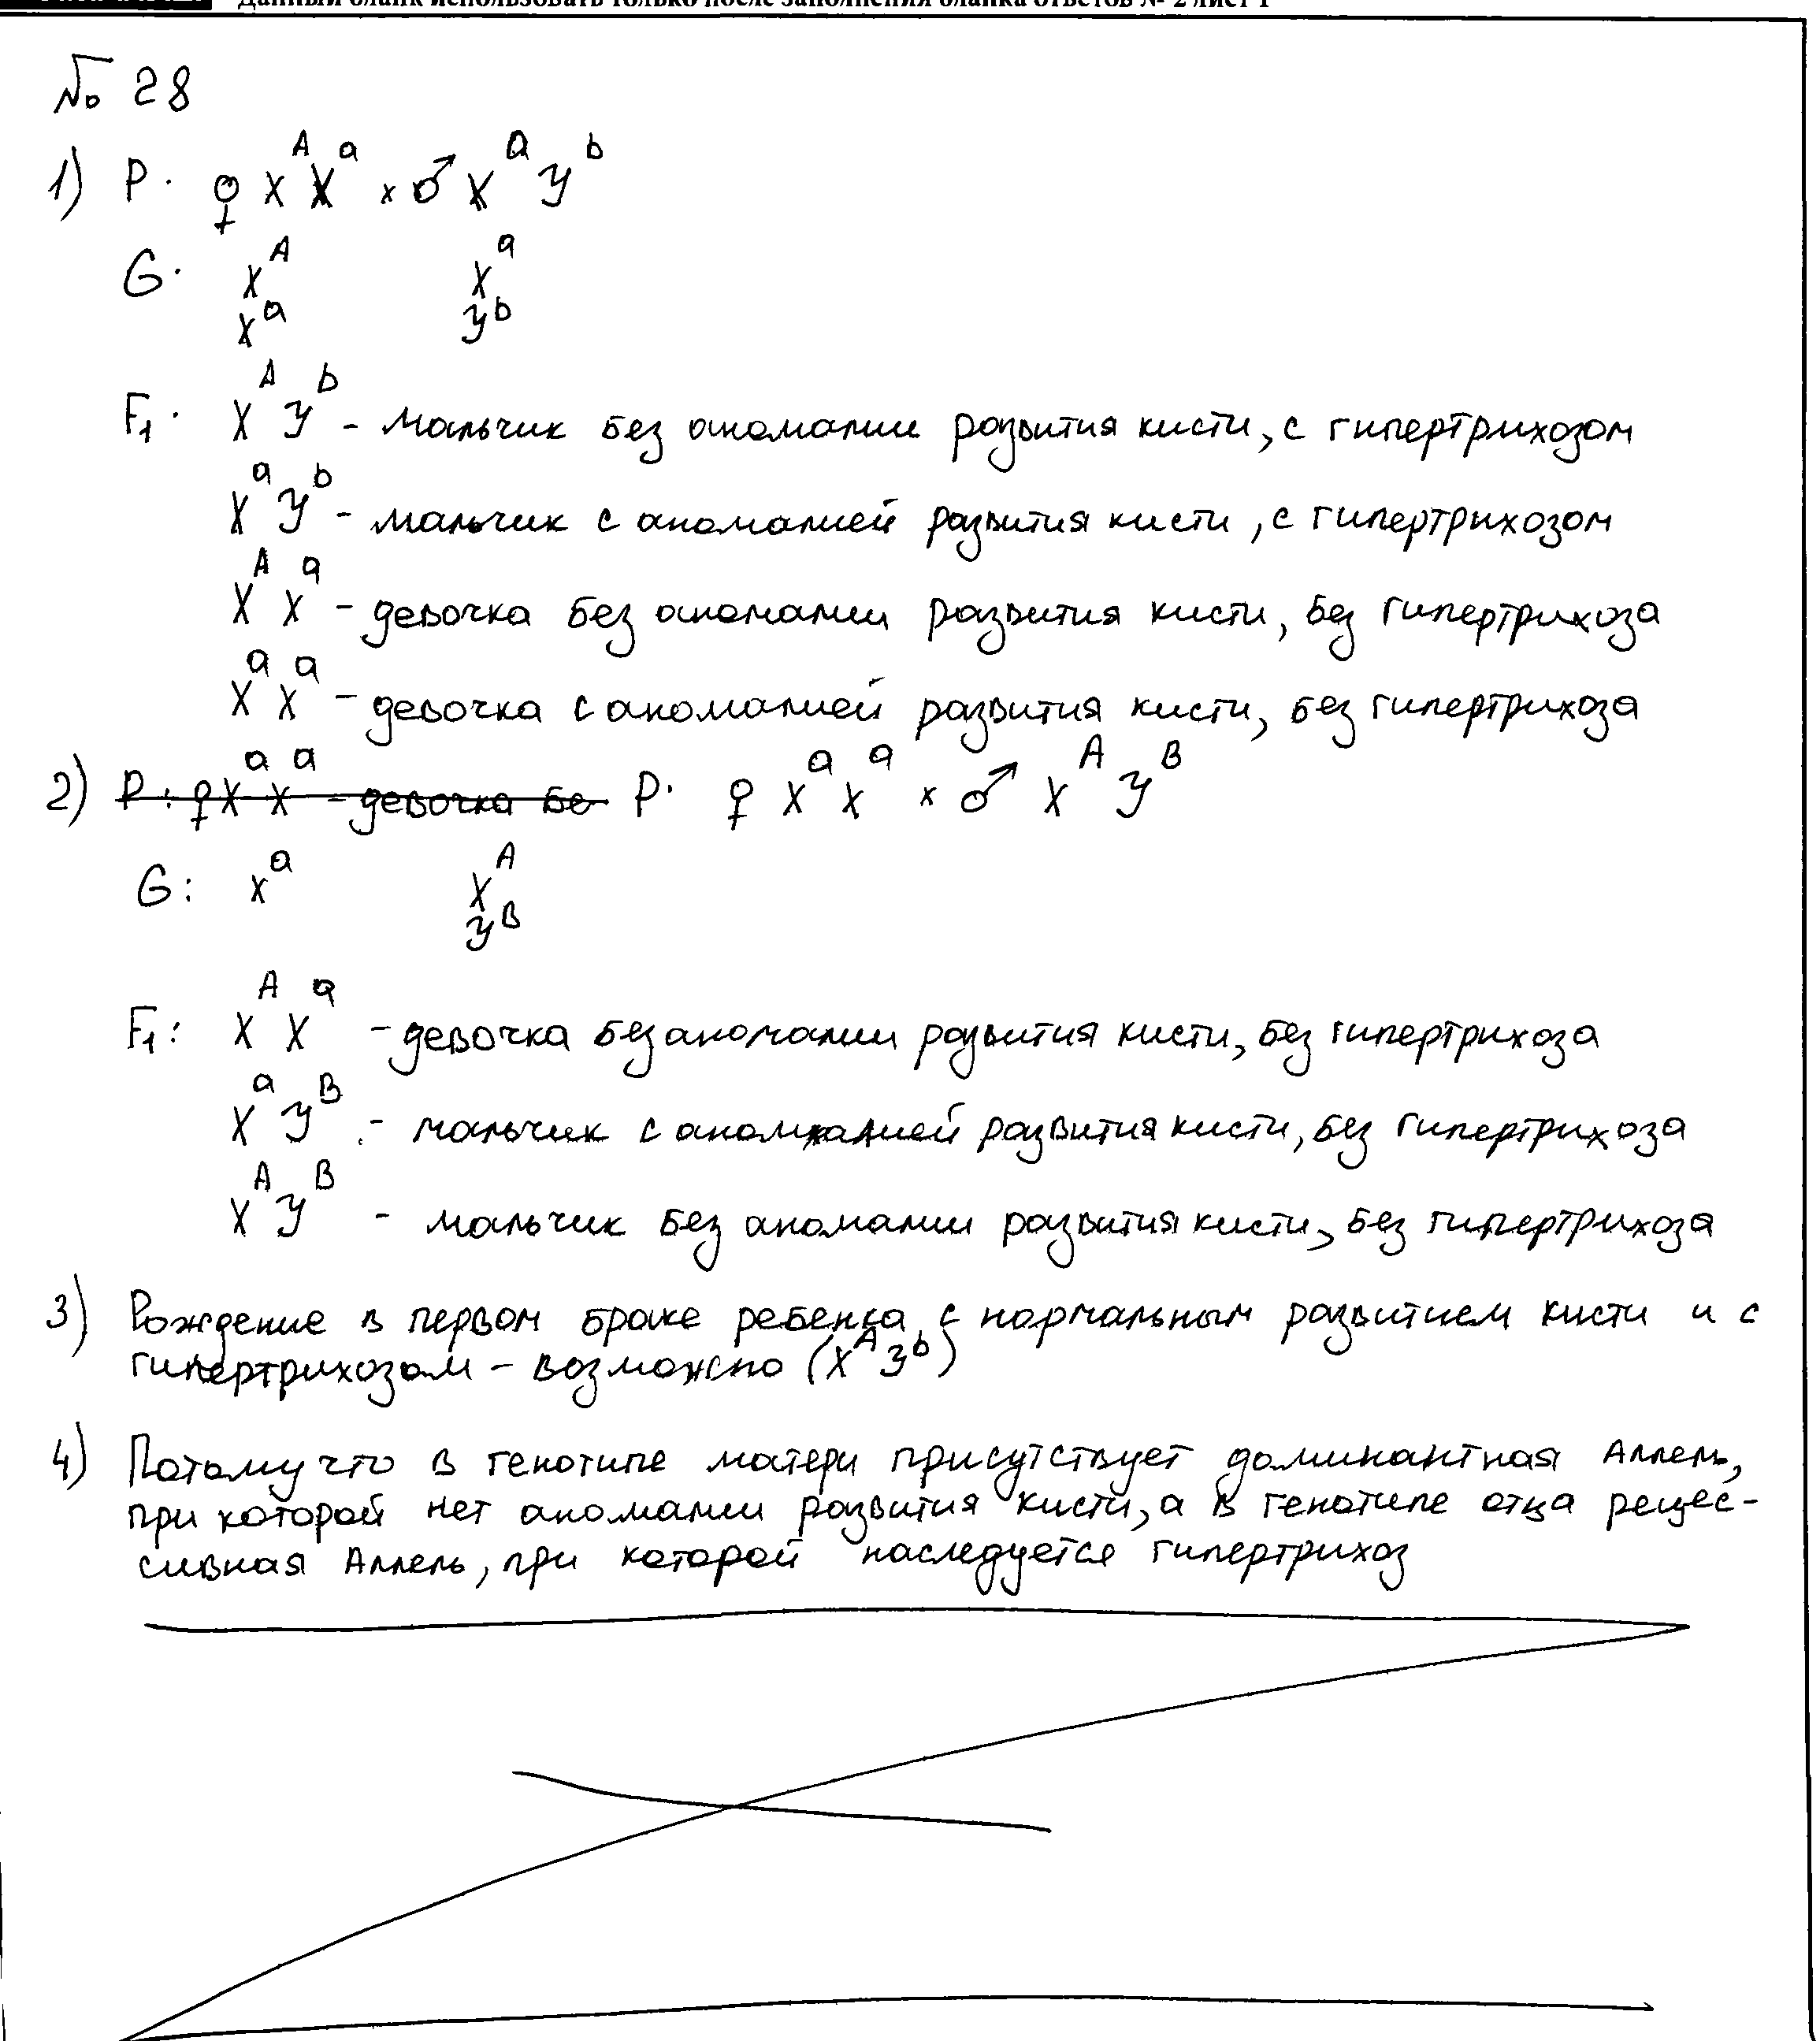 Данный бланк использовать только после заполнения бланка ответов № 2 лист 1
№ 28
1) P. ♀ X^A X^a × ♂ X^a У^b
G. X^A X^a
X^a У^b
F1. X^A У^b - мальчик без аномалии развития кисти, с гипертрихозом
X^a У^b - мальчик с аномалией развития кисти, с гипертрихозом
X^A X^a - девочка без аномалии развития кисти, без гипертрихоза
X^a X^a - девочка с аномалией развития кисти, без гипертрихоза
2) P: ♀ X^a X^a - девочка бе P. ♀ X^a X^a × ♂ X^A У^B
G: X^a X^A
У^B
F1: X^A X^a - девочка без аномалии развития кисти, без гипертрихоза
X^a У^B - мальчик с аномалией развития кисти, без гипертрихоза
X^A У^B - мальчик без аномалии развития кисти, без гипертрихоза
3) Рождение в первом браке ребенка с нормальным развитием кисти и с
гипертрихозом - возможно (X^A У^b)
4) Потому что в генотипе матери присутствует доминантная Аллель,
при которой нет аномалии развития кисти, а в генотипе отца рецес-
сивная Аллель, при которой наследуется гипертрихоз